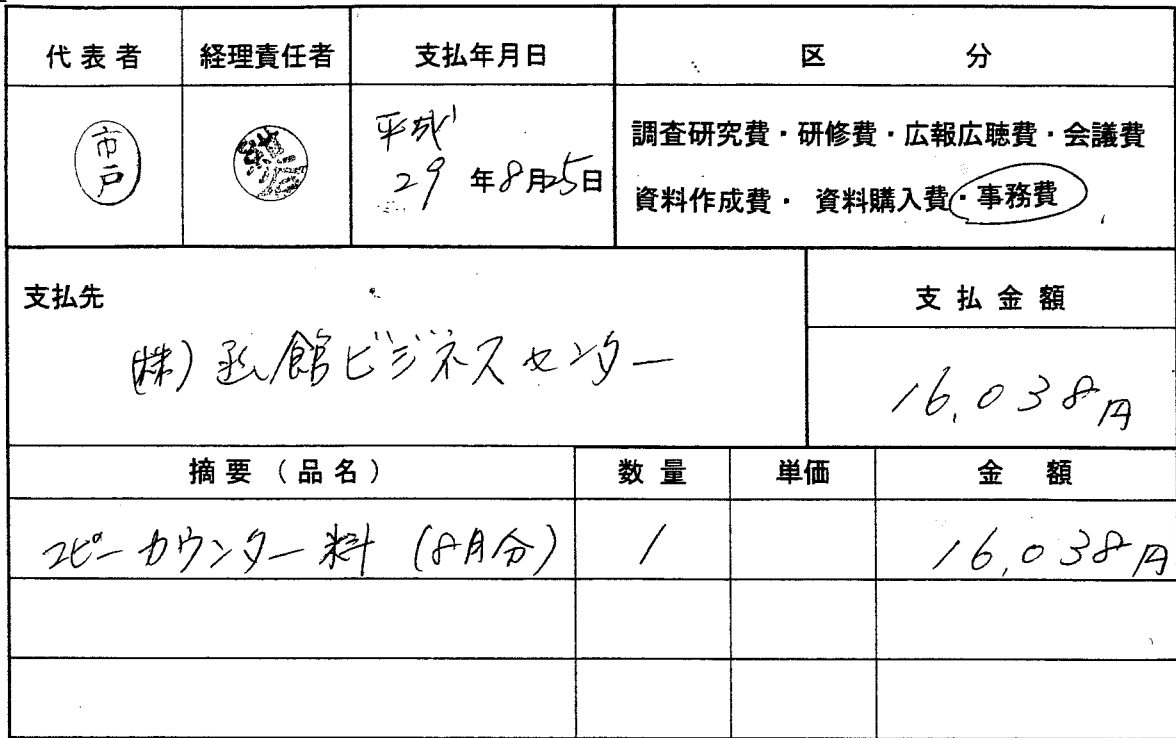 代表者 経理責任者 支払年月日 区分
市戸
平成
29年8月25日
調査研究費・研修費・広報広聴費・会議費
資料作成費・資料購入費・事務費
支払先 支払金額
(株)函館ビジネスセンター
16,038円
摘要(品名) 数量 単価 金額
コピーカウンター料(8月分) 1 16,038円